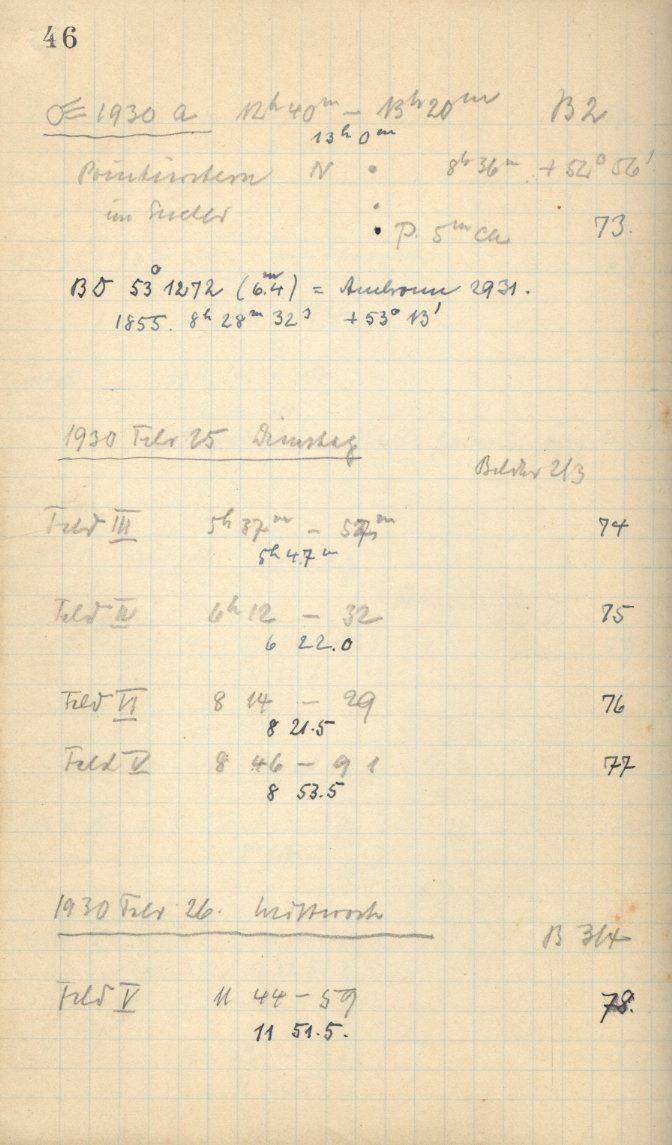 46
☄ 1930 a 12h 40m – 13h 20m B 2
13h 0m
N 8h 36m + 52° 56'
im Sucher
P. 5m 73.
BD 53° 1272 (6.4m) = Ambronn 2931.
1855. 8h 28m 32s +53° 13'
1930 Febr 25 Dienstag
Bilder 2/3
Feld III 5h 37m – 57m 74
5h 47m
Feld IV 6h 12 – 32 75
6 22.0
Feld II 8 14 – 29 76
8 21.5
Feld V 8 46 – 9 1 77
8 53.5
1930 Febr 26. Mittwoch
B 3/4
Feld V 11 44 – 59 78.
11 51.5.